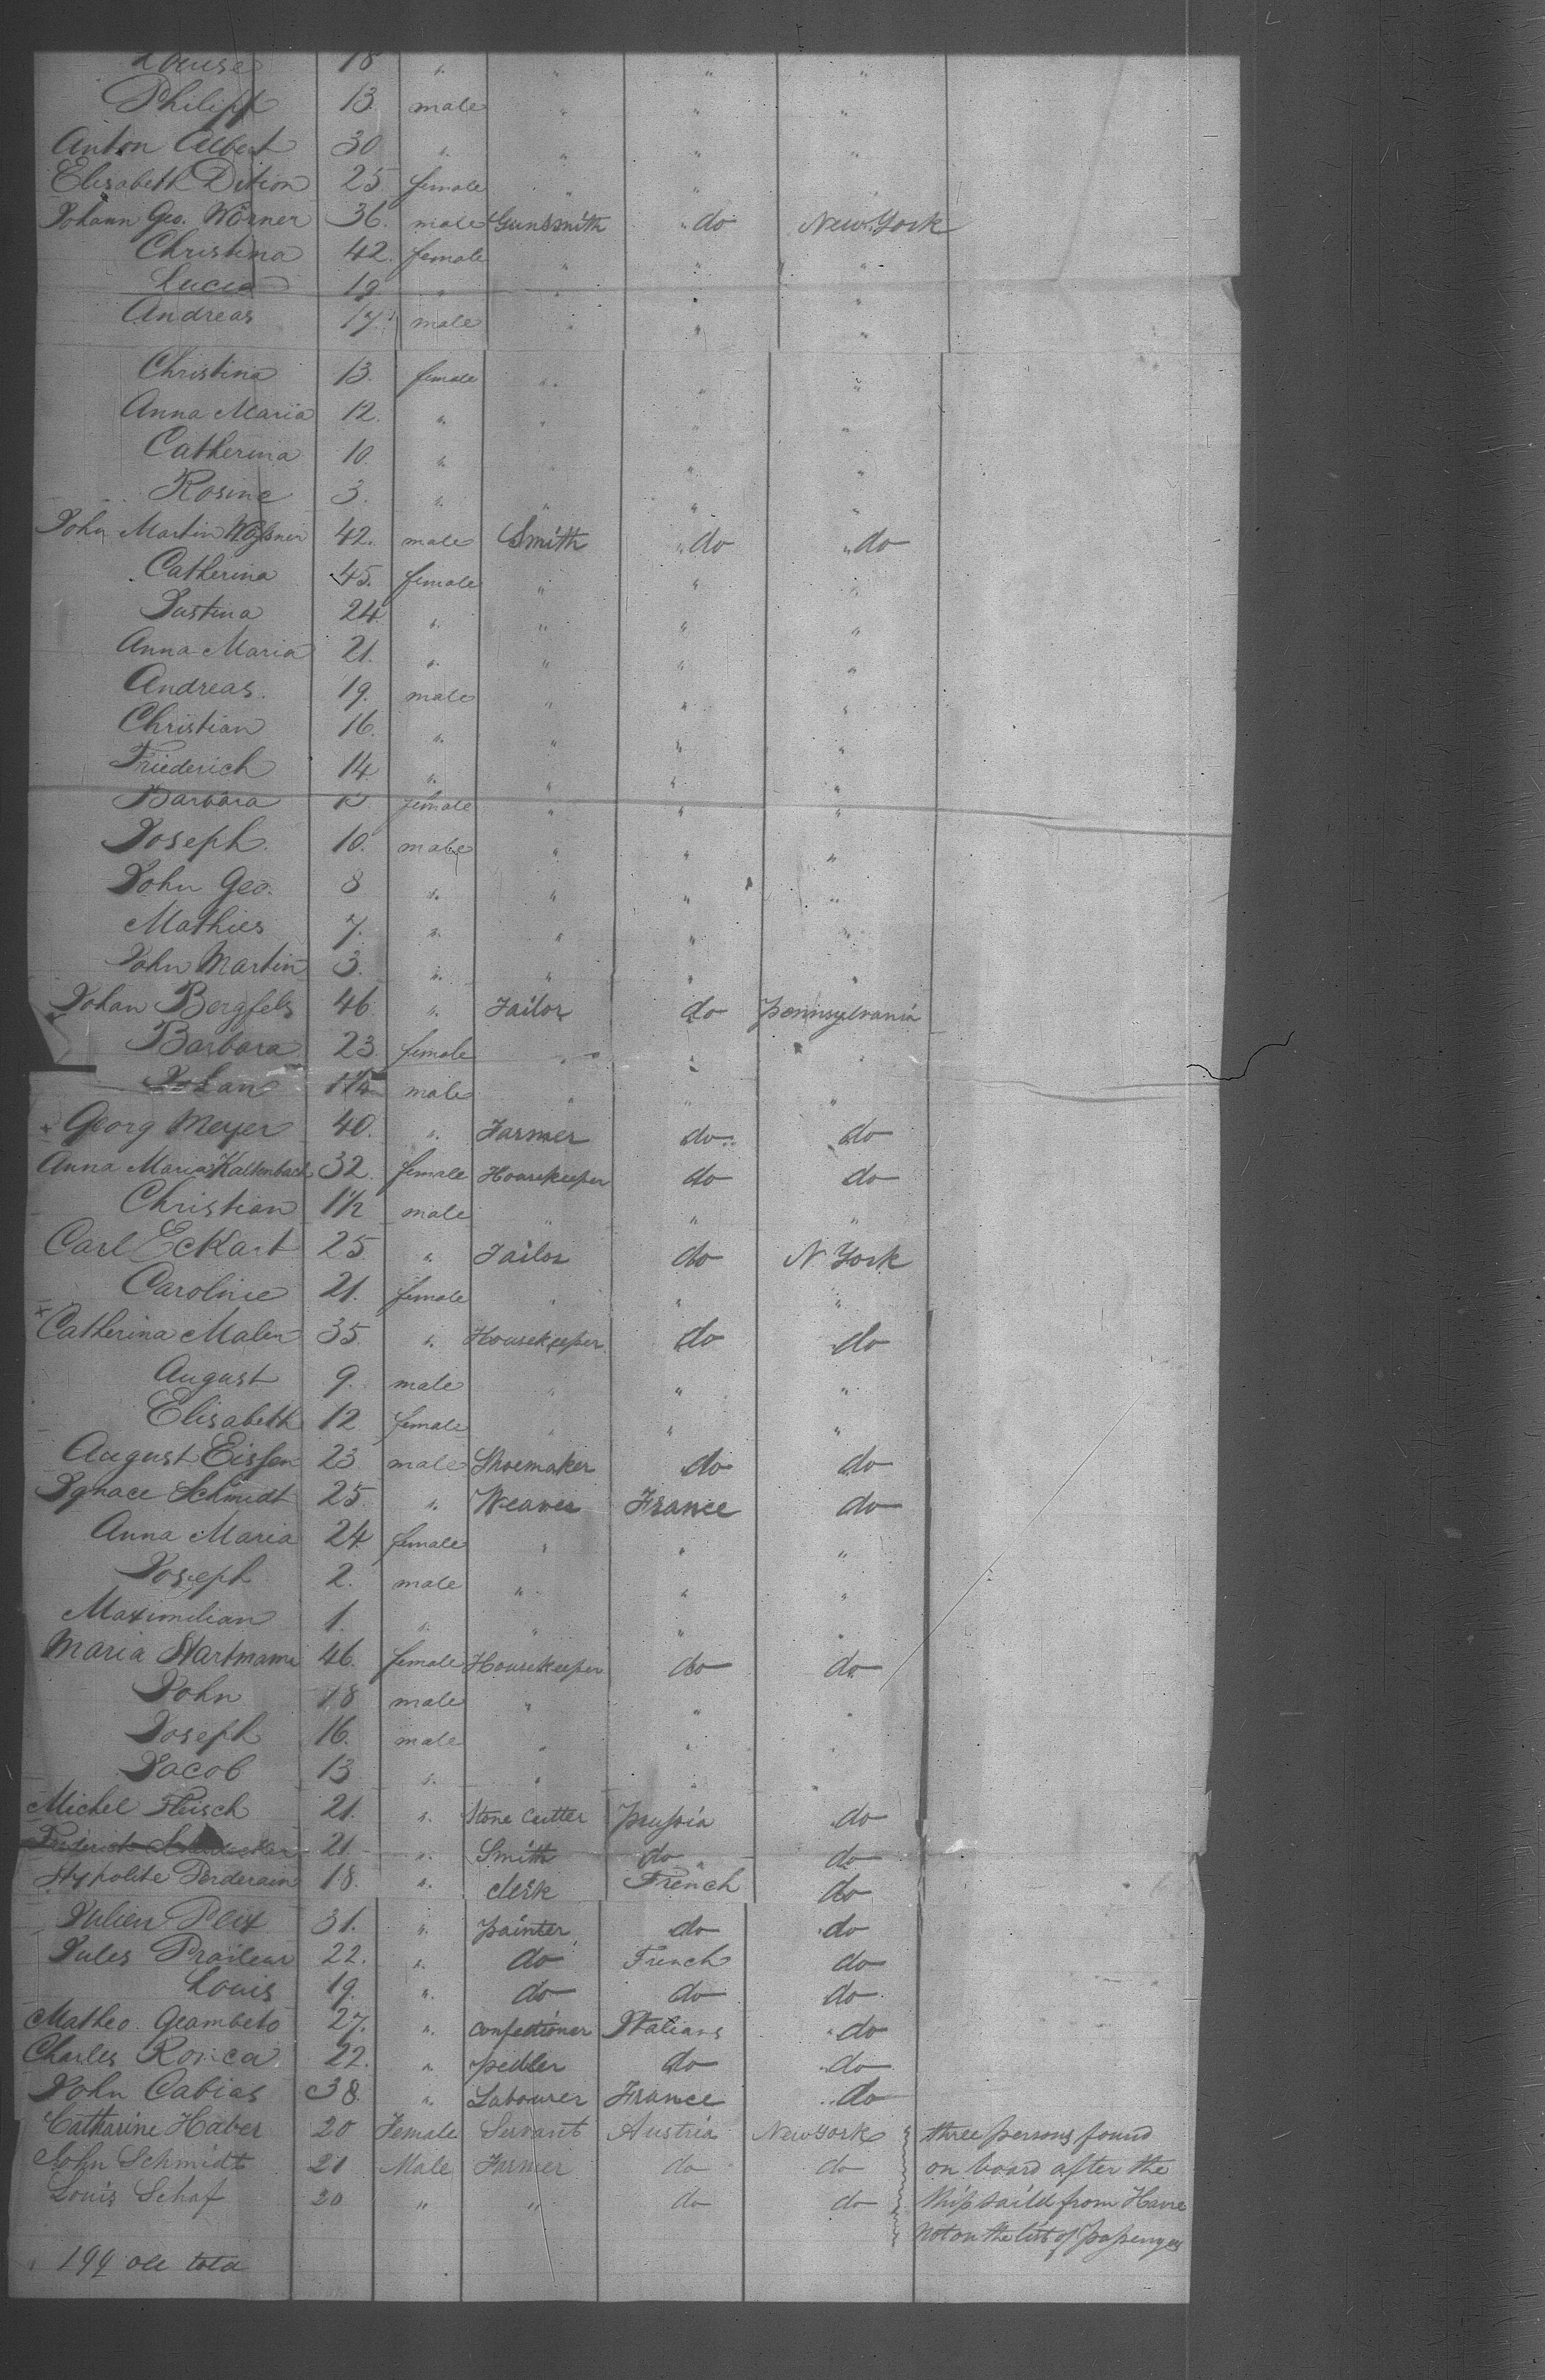 Louise 18 " " " "
Philipp 13. male " " "
Anton Albert 30 " " " "
Elisabeth Dition 25 female " " "
Johann Geo. Wörner 36. male Gunsmith do New York
Christina 42. female " " "
Lucia 19 " " " "
Andreas 17. male " " "
Christina 13. female " " "
Anna Maria 12. " " " "
Catherina 10. " " " "
Rosine 3. " " " "
John Martin 42. male Smith do do
Catherina 45. female " " "
Justina 24. " " " "
Anna Maria 21. " " " "
Andreas. 19. male " " "
Christian 16. " " " "
Friederich 14 " " " "
Barbara female " " "
Joseph. 10. male " " "
John Geo. 8 " " " "
Mathies 7. " " " "
John Martin 3. " " " "
Johan Bergfels 46 " Tailor do Pennsylvania
Barbara 23. female " " "
Johan 1 1/4 male " " "
x Georg Meyer 40. " Farmer do do
Anna Maria Kaltenbach 32. female Housekeeper do do
Christian 1 1/2 male " " "
Carl Eckart 25 " Tailor do N York
Caroline 21. female " " "
x Catherina Maler 35. " Housekeeper do do
August 9. male " " "
Elisabeth 12 female " " "
August Eissen 23 male Shoemaker do do
Ignace Schmidt 25. " Weaver France do
Anna Maria 24 female " " "
Joseph 2. male " " "
Maximilian 1. " " " "
Maria Hartmann 46. female Housekeeper do do
John 18 male " " "
Joseph 16. male " " "
Jacob 13 " " " "
Michel Fleisch 21. " Stone Cutter Prussia do
21 " Smith do do
Hypolite Perderain 18. " clerk French do
Julien Pleix 31. " painter do do
Jules Praileur 22. " do French do
Louis 19. " do do do
Matheo Geambeto 27. " Confectioner Italians do
Charles Ronca 22. " pedler do do
John Cabias 38. " Labourer France do
Catharine Haber 20 Female Servant Austria New York three persons found
John Schmidt 21 Male Farmer do do on board after the
Louis Schaf 20 " " do do Ship saild from Havre
not on the list of passengers
199 all told